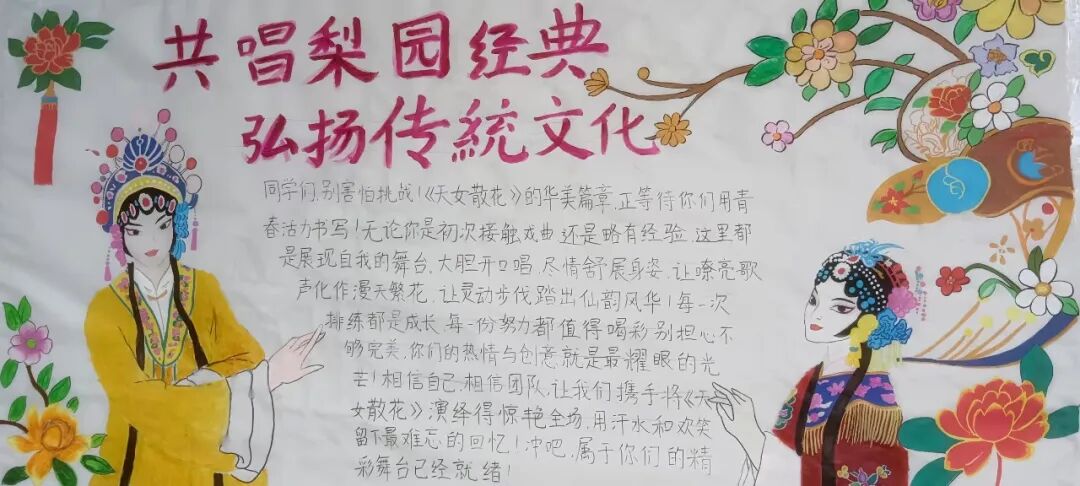 共唱梨园经典
弘扬传統文化
同学们,别害怕挑战!《天女散花》的华美篇章,正等待你们用青
春活力书写!无论你是初次接触戏曲,还是略有经验,这里都
是展现自我的舞台,大胆开口唱,尽情舒展身姿,让嘹亮歌
声化作漫天繁花,让灵动步伐踏出仙韵风华!每一次
排练都是成长,每一份努力都值得喝彩,别担心不
够完美,你们的热情与创意就是最耀眼的光
芒!相信自己,相信团队,让我们携手将《天
女散花》演绎得惊艳全场,用汗水和欢笑
留下最难忘的回忆!冲吧,属于你们的精
彩舞台已经就绪!